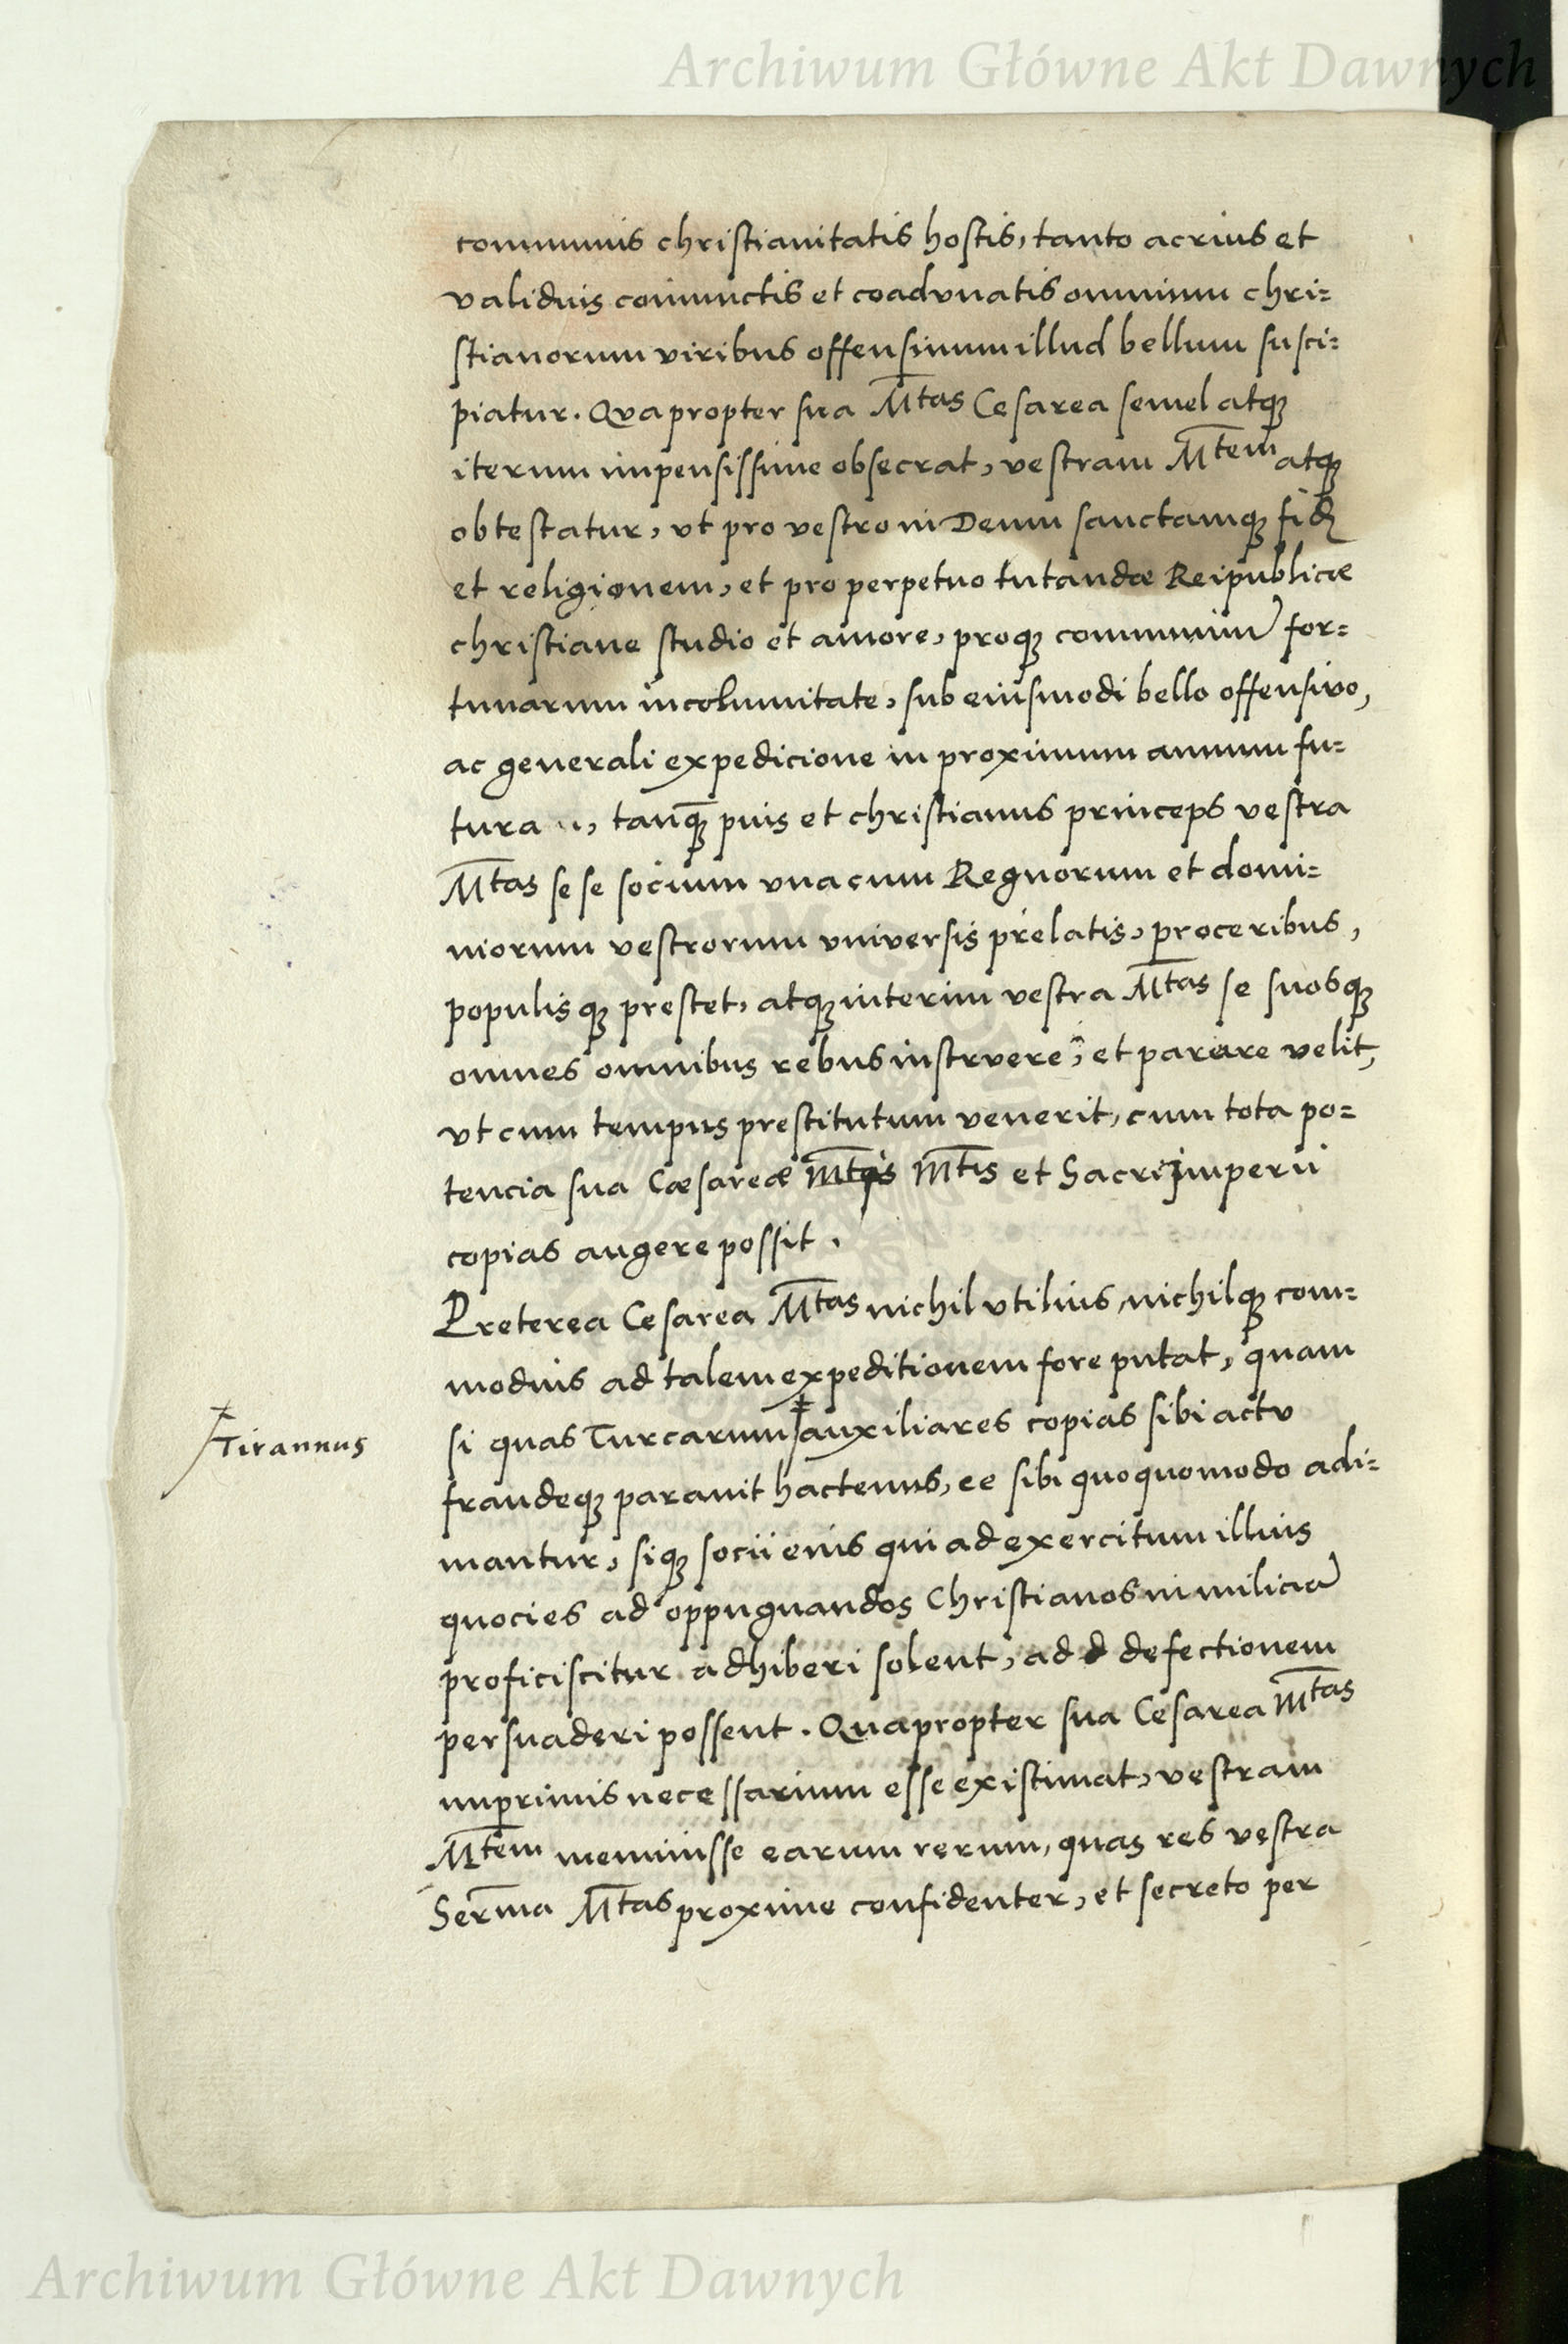 Archiwum Główne Akt Dawnych
communis christianitatis hostis, tanto acrius et
validius coniunctis et coadvnatis omnium chri=
stianorum viribus offensiuum illud bellum susci=
piatur. Qvapropter sua M̅tas Cesarea semel atq̃
iterum impensissime obsecrat, vestram M̅tem atq̃
obtestatur, vt pro vestro in Deum sanctamq̃ fidẽ
et religionem, et pro perpetuo tutandæ Reipublicæ
christiane studio et amore, proq̃ communiũ for=
tunarum incolumitate, sub eiusmodi bello offensivo,
ac generali expedicione in proximum annum fu=
tura, tanq̃ pius et christianus princeps vestra
M̅tas se se socium vna cum Regnorum et domi=
niorum vestrorum vniversis prelatis, proceribus,
populisq̃ prestet, atq̃ interim vestra M̅tas se suosq̃
omnes omnibus rebus instrvere, et parare velit,
vt cum tempus prestitutum venerit, cum tota po=
tencia sua Cæsareæ M̅tis et Sacri jmperii
copias augere possit.
Preterea Cesarea M̅tas nichil vtilius, nichilq̃ com=
modius ad talem expeditionem fore putat, quam
Tirannus
si quas Turcarum ‡ auxiliares copias sibi actv
fraudeq̃ parauit hactenus, ee sibi quoquomodo adi=
mantur, siq̃ socii eius qui ad exercitum illius
quocies ad oppugnandos Christianos in miliciã
proficiscitur adhiberi solent, ad d defectionem
persuaderi possent. Quapropter sua Cesarea M̅tas
imprimis necessarium esse existimat, vestram
M̅tem meminisse earum rerum, quas res vestra
Ser̅ma M̅tas proxime confidenter, et secreto per
Archiwum Główne Akt Dawnych